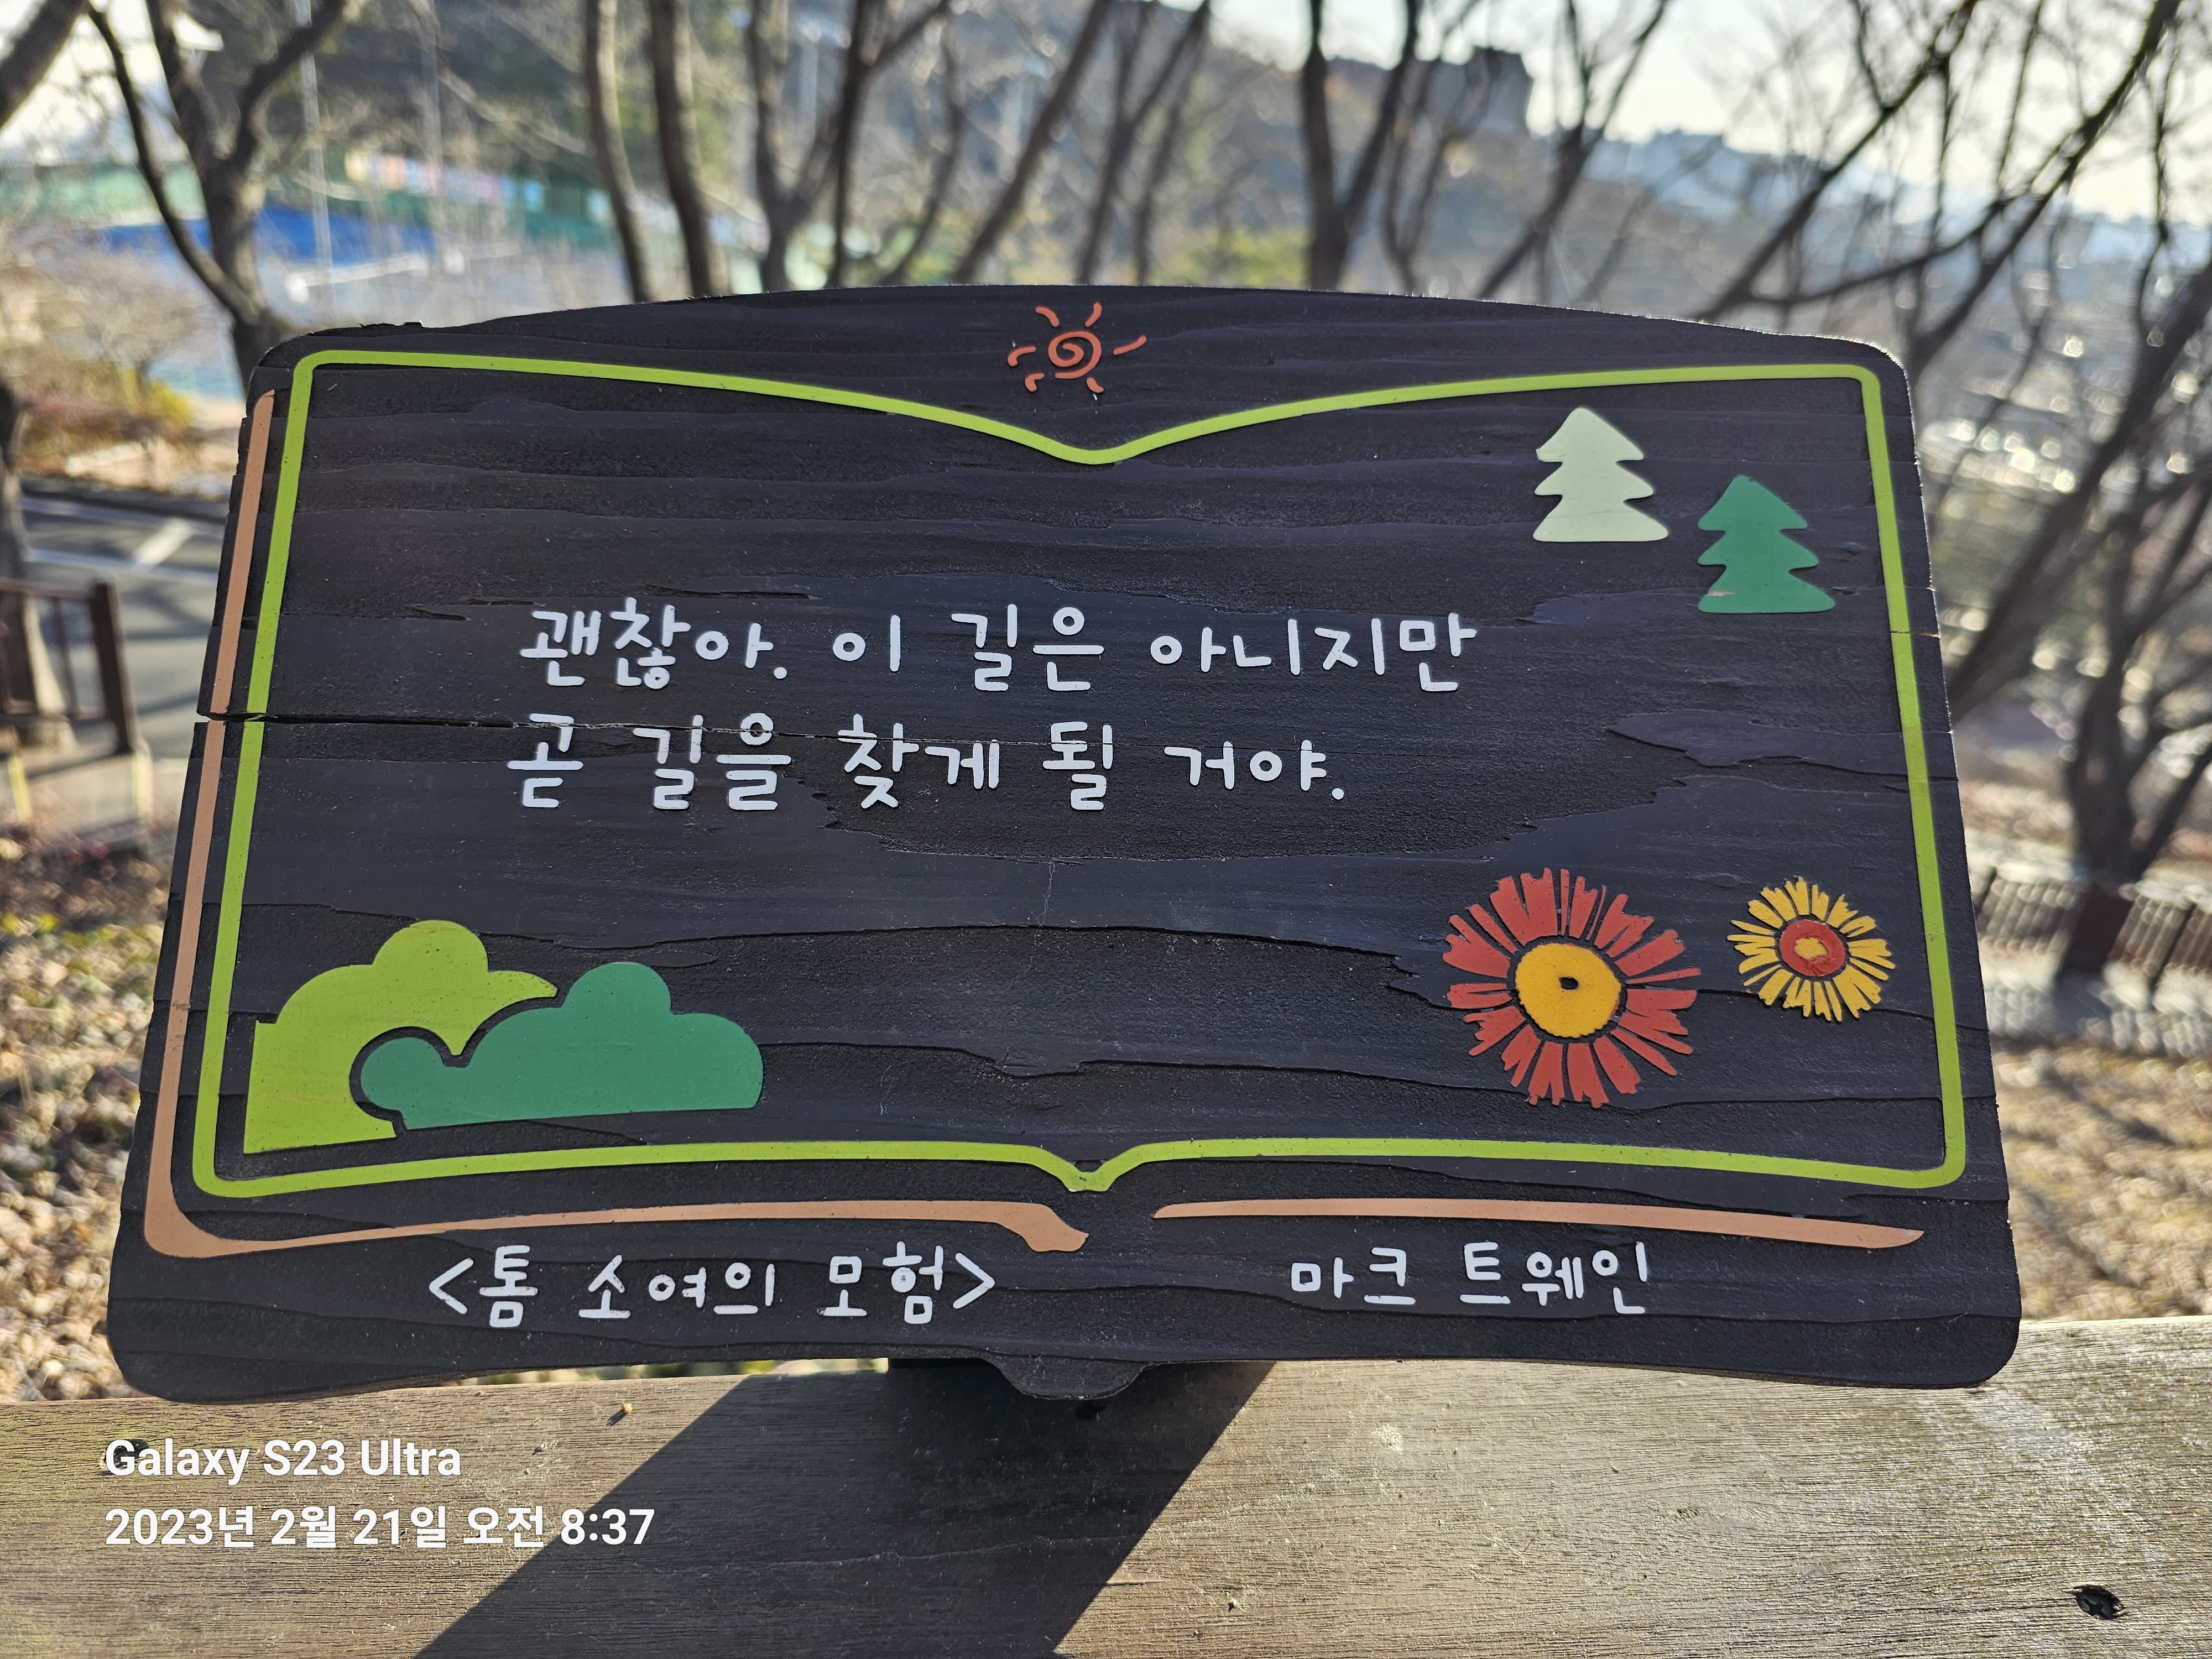 괜찮아. 이 길은 아니지만
곧 길을 찾게 될 거야.
<톰 소여의 모험> 마크 트웨인
Galaxy S23 Ultra
2023년 2월 21일 오전 8:37